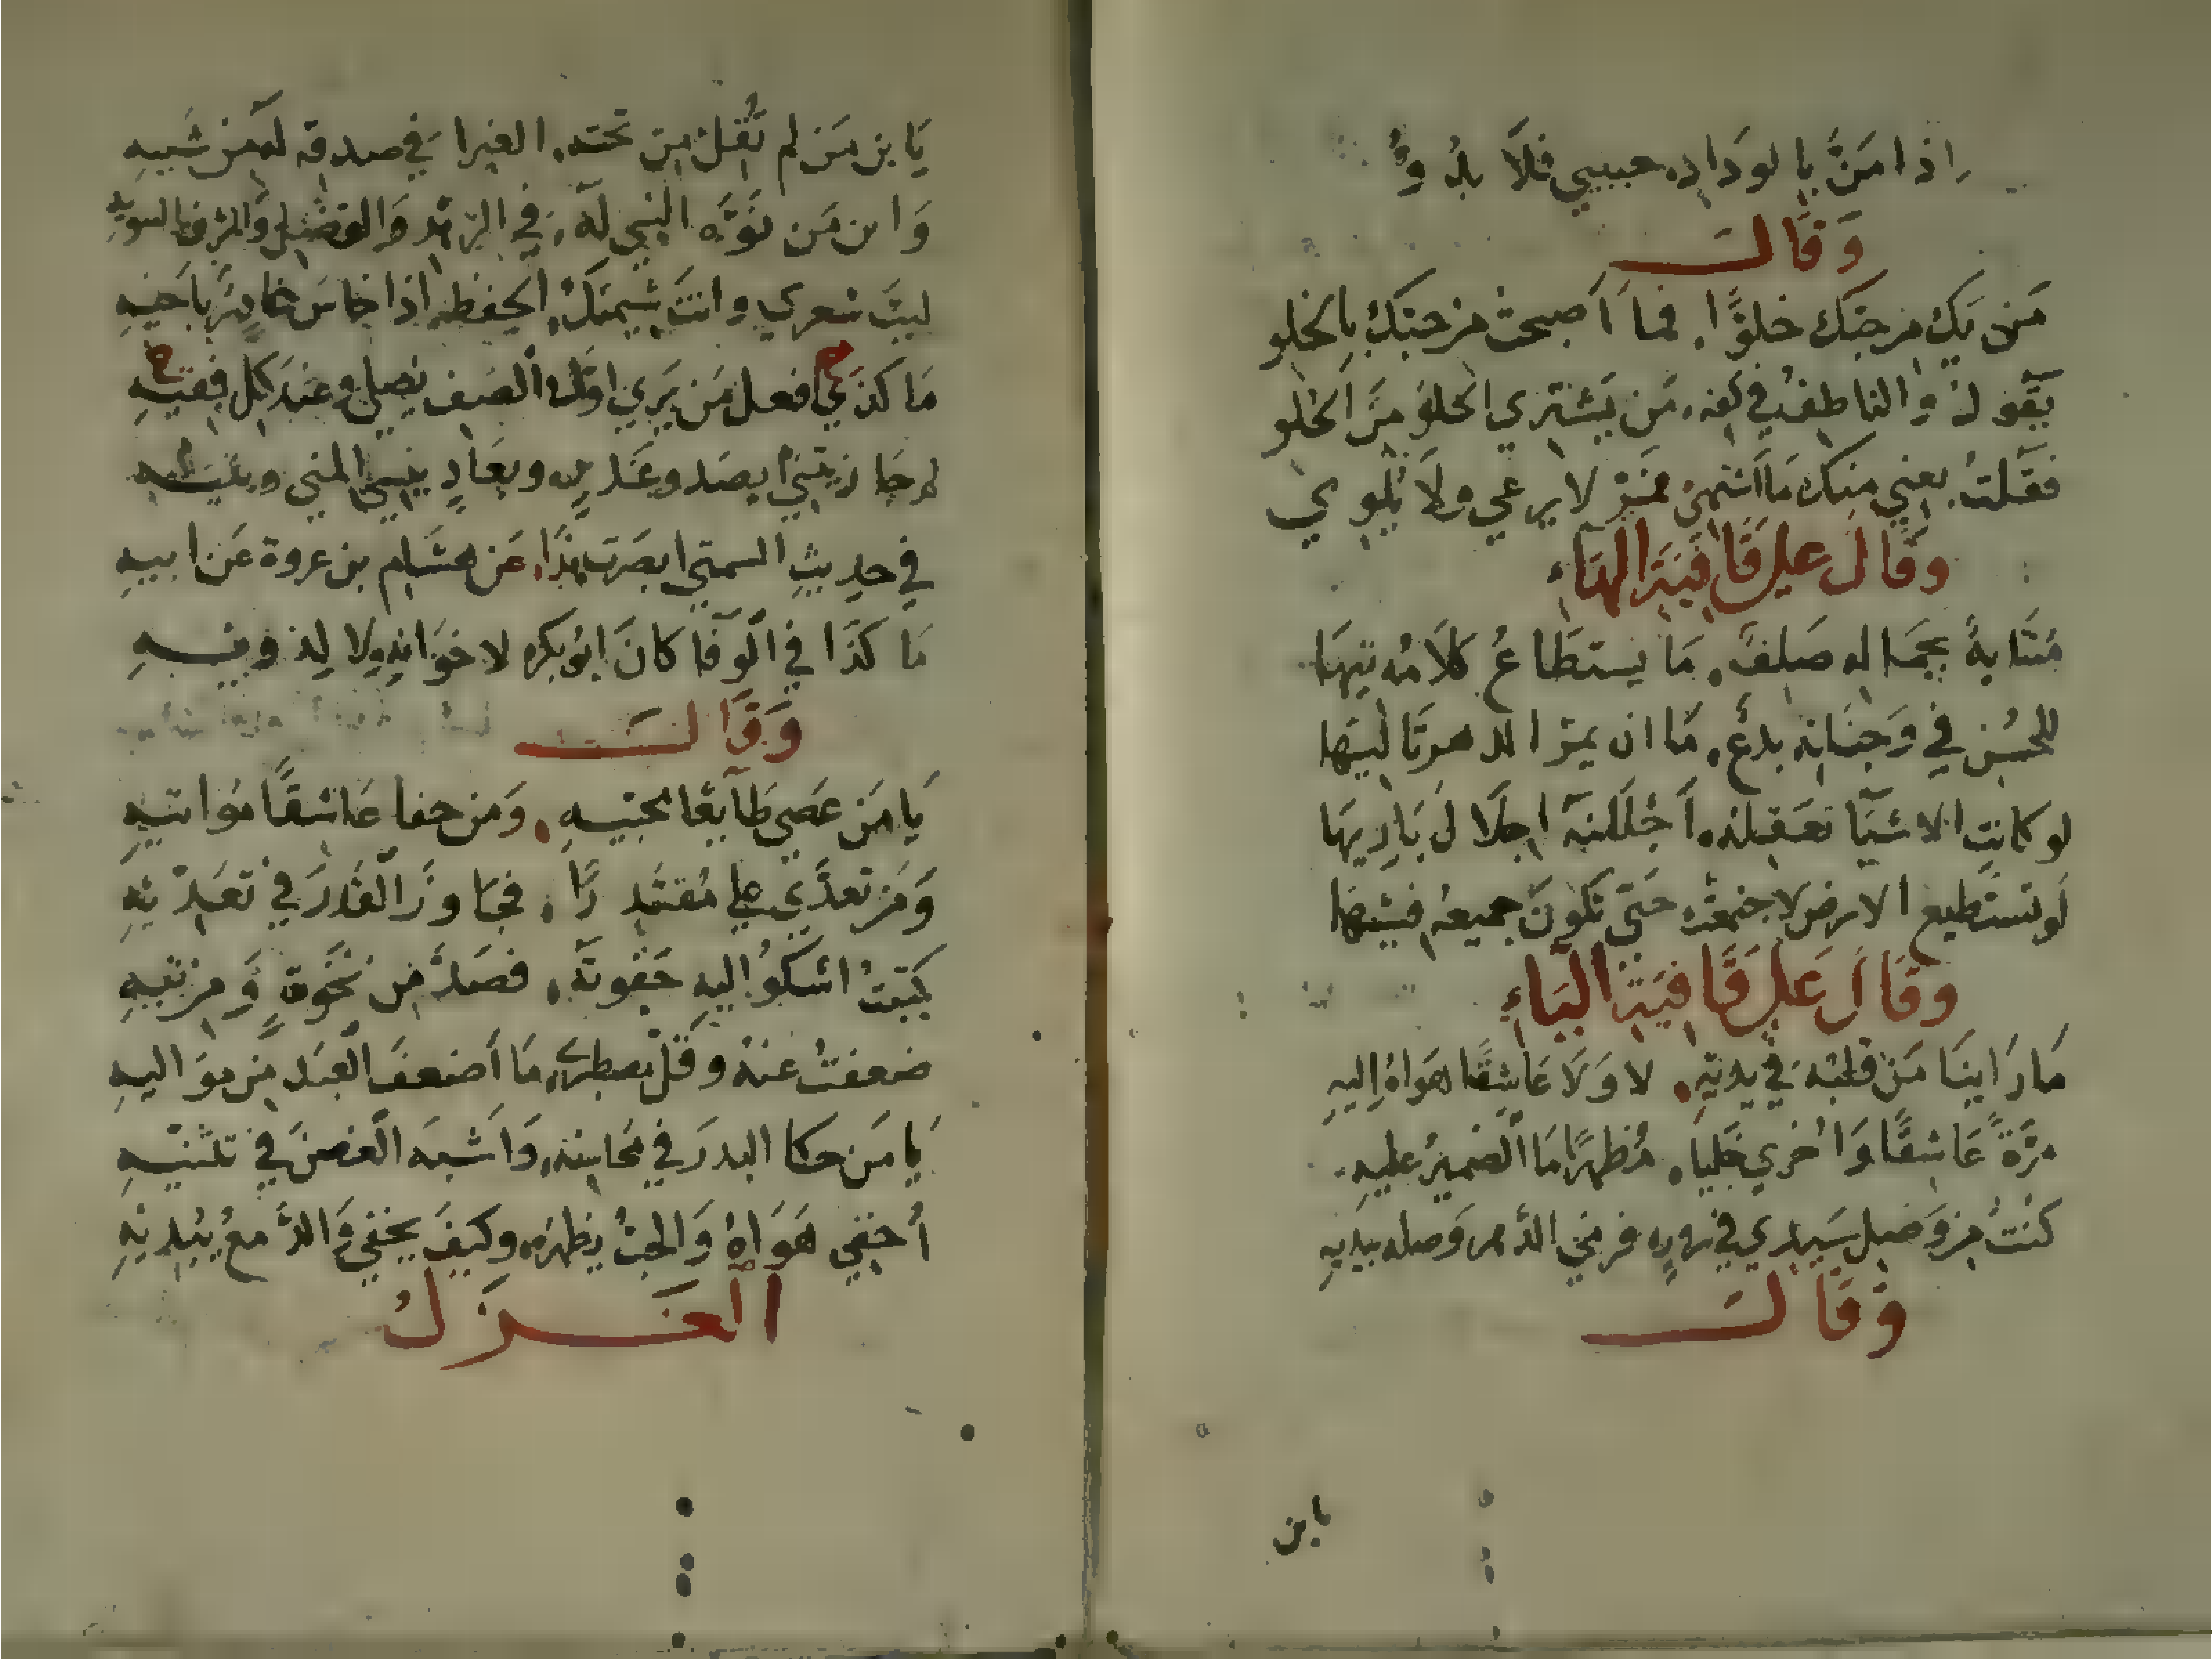 اذا مَنَّ بالوداد حبيبي فلا بدُوُّ
وَقَالَ
مَن يَكُ من حبّك خلوًا فما اَصبحتُ من حبّك بالخلو
يقَولُ والناطفُ في كفه مَن يَشتري الحلوَ منَ الحلو
فقَلتُ بعني منك مَا اَشتهي لا يرعي ولا يُلوي
وقَالَ علي قَافيَة الهَاء
بجَماله صَلفٌ مَا يستطَاعُ كلاَمُه تيهَا
للحُسن في وَجنَاته بدعٌ مَا ان يملّ الدهر تَاليهَا
لو كانتِ الاشيَا تعَقله اَجلَلنهَ اجلَالَ بَاريهَا
لَو تستَطيع الارض لاجتمعت حَتّي تكونَ جميعهُ فيهَا
وقَالَ عَلي قَافيَة اليَاء
مَا رَاينَا مَن قلبُه في يديَهِ لا وَلاَ عَاشِقًا هَوَاهُ اِليهِ
مرّةً عَاشقًا وَاُخري خَليا مُظهرًا مَا الضميرُ عليهِ
كنتُ من وَصل سَيدي في فرمَي الدّهر وَصله بيدَيهِ
وَقَالَ
يابن
يَا بن مَن لم تُقلّ من تحته الغبرا في صدقه له من شَبيهِ
وَابن مَن نَوَّه النبي له في الزهد وَالفضل وَ
ليتَ شعري وانتَ شيمتكُ الحفظ اذا خاسَ باَخيهِ
مَا كذي فعل مَن يَري اوَّل الصَف يصلي وعندَ كل فقيهِ
لم جَازيتني بصَد وعَدر وبعَادٍ ينسي المني
في حديثِ عَن هشَام بن عروة عَن ابيهِ
مَا كذَا في الوَفا كانَ ابُو بكر لاخوَانه ولا لذويَهِ
وَقَالَ
يَا مَن عصَي طَايعًا محبّيهِ وَمن جفا عَاشقًا مُواتيهِ
وَمَن تعدَّي علي مُقتَدرًا فجَاوزَ القَدرَ في تعَدّيَهِ
كتَبتُ اشكُو اليهِ جَفوتَه فصَدَّ من نخَوةٍ وَمن تيهِ
ضعفتُ عنهُ وقلّ مَا اَضعفَ العَبد من موَاليهِ
يَا مَن حكا البدرَ في محَاسنه وَاَشبهَ الغصنَ في تثنّيهِ
اُخفي هَوَاهُ وَالحبُّ يظهرُه وكيَفَ يخفي وَالدَّمعُ يُبديهِ
الغَزَلُ